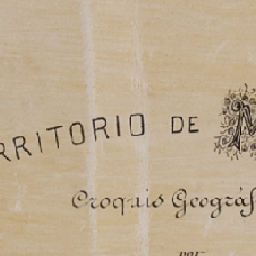 RRITORIO DE M
Croquis Geográf
por